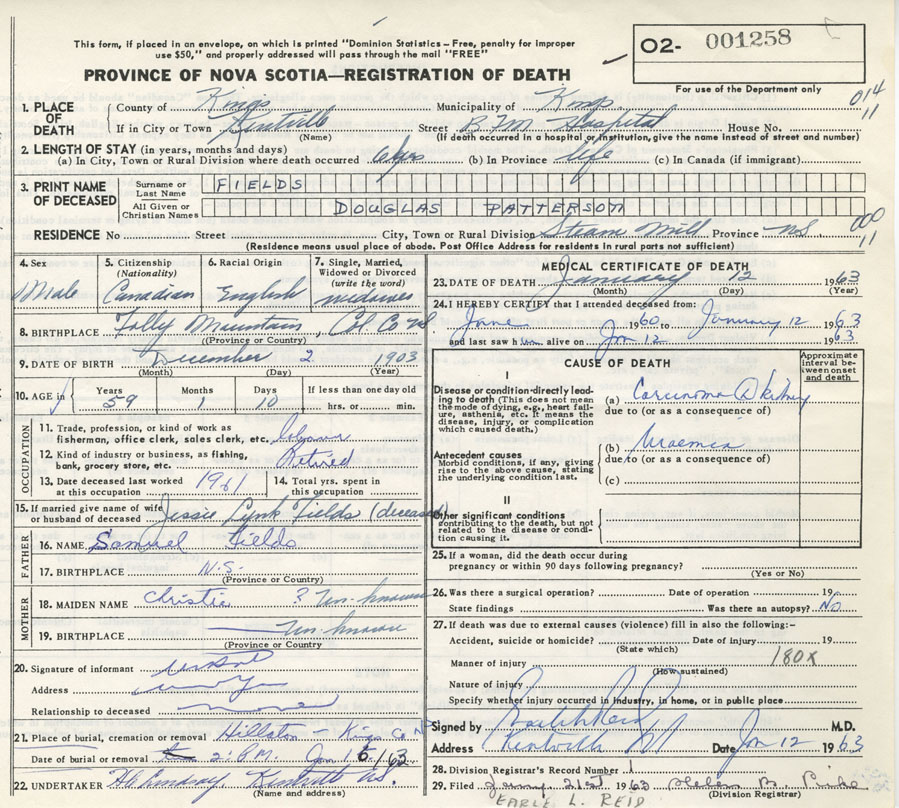 This form, if placed in an envelope, on which is printed "Dominion Statistics – Free, penalty for improper
use $50," and properly addressed will pass through the mail "FREE"
O2- 001258
PROVINCE OF NOVA SCOTIA—REGISTRATION OF DEATH
For use of the Department only
014
11
1. PLACE OF DEATH
County of Kings Municipality of Kings
If in City or Town Kentville Street B.M. Hospital House No.
(Name) (If death occurred in a hospital or institution, give the name instead of street and number)
2. LENGTH OF STAY (in years, months and days)
(a) In City, Town or Rural Division where death occurred 6 yrs (b) In Province life (c) In Canada (if immigrant)
3. PRINT NAME OF DECEASED
Surname or Last Name FIELDS
All Given or Christian Names DOUGLAS PATTERSON
000
11
RESIDENCE No Street City, Town or Rural Division Steam Mill Province N.S
(Residence means usual place of abode. Post Office Address for residents in rural parts not sufficient)
4. Sex Male
5. Citizenship (Nationality) Canadian
6. Racial Origin English
7. Single, Married, Widowed or Divorced (write the word)
8. BIRTHPLACE Folly Mountain, Col. Co NS
(Province or Country)
9. DATE OF BIRTH December 2 1903
(Month) (Day) (Year)
10. AGE Years 59 Months 1 Days 10 If less than one day old hrs. or min.
OCCUPATION
11. Trade, profession, or kind of work as
fisherman, office clerk, sales clerk, etc.
12. Kind of industry or business, as fishing,
bank, grocery store, etc. Retired
13. Date deceased last worked at this occupation 1961
14. Total yrs. spent in this occupation
15. If married give name of wife
or husband of deceased Jessie Lynk Fields (deceased)
FATHER
16. NAME Samuel Fields
17. BIRTHPLACE N.S.
(Province or Country)
MOTHER
18. MAIDEN NAME Christie ? Un-known
19. BIRTHPLACE Un-known
(Province or Country)
20. Signature of informant
Address
Relationship to deceased
21. Place of burial, cremation or removal Hillaton – Kings Co NS
Date of burial or removal 2:P.M. Jan 15/63
22. UNDERTAKER Kentville N.S.
(Name and address)
MEDICAL CERTIFICATE OF DEATH
23. DATE OF DEATH January 12 1963
(Month) (Day) (Year)
24. I HEREBY CERTIFY that I attended deceased from:
June 1960 to January 12 1963
and last saw him alive on Jan 12 1963
CAUSE OF DEATH
Approximate interval between onset and death
I
Disease or condition directly leading to death (This does not mean the mode of dying, e.g., heart failure, asthenia, etc. It means the disease, injury, or complication which caused death.)
(a) Carcinoma kidney
due to (or as a consequence of)
Antecedent causes
Morbid conditions, if any, giving rise to the above cause, stating the underlying condition last.
(b) Uraemia
due to (or as a consequence of)
(c)
II
Other significant conditions
contributing to the death, but not related to the disease or condition causing it.
25. If a woman, did the death occur during
pregnancy or within 90 days following pregnancy?
(Yes or No)
26. Was there a surgical operation? Date of operation 19
State findings Was there an autopsy? No
27. If death was due to external causes (violence) fill in also the following:–
Accident, suicide or homicide? Date of injury 19
(State which)
180X
Manner of injury
(How sustained)
Nature of injury
Specify whether injury occurred in industry, in home, or in public place
Signed by M.D.
Address Kentville NS Date Jan 12 1963
28. Division Registrar's Record Number 1
29. Filed 21st 1963 Helen B.
(Division Registrar)
EARLE L. REID